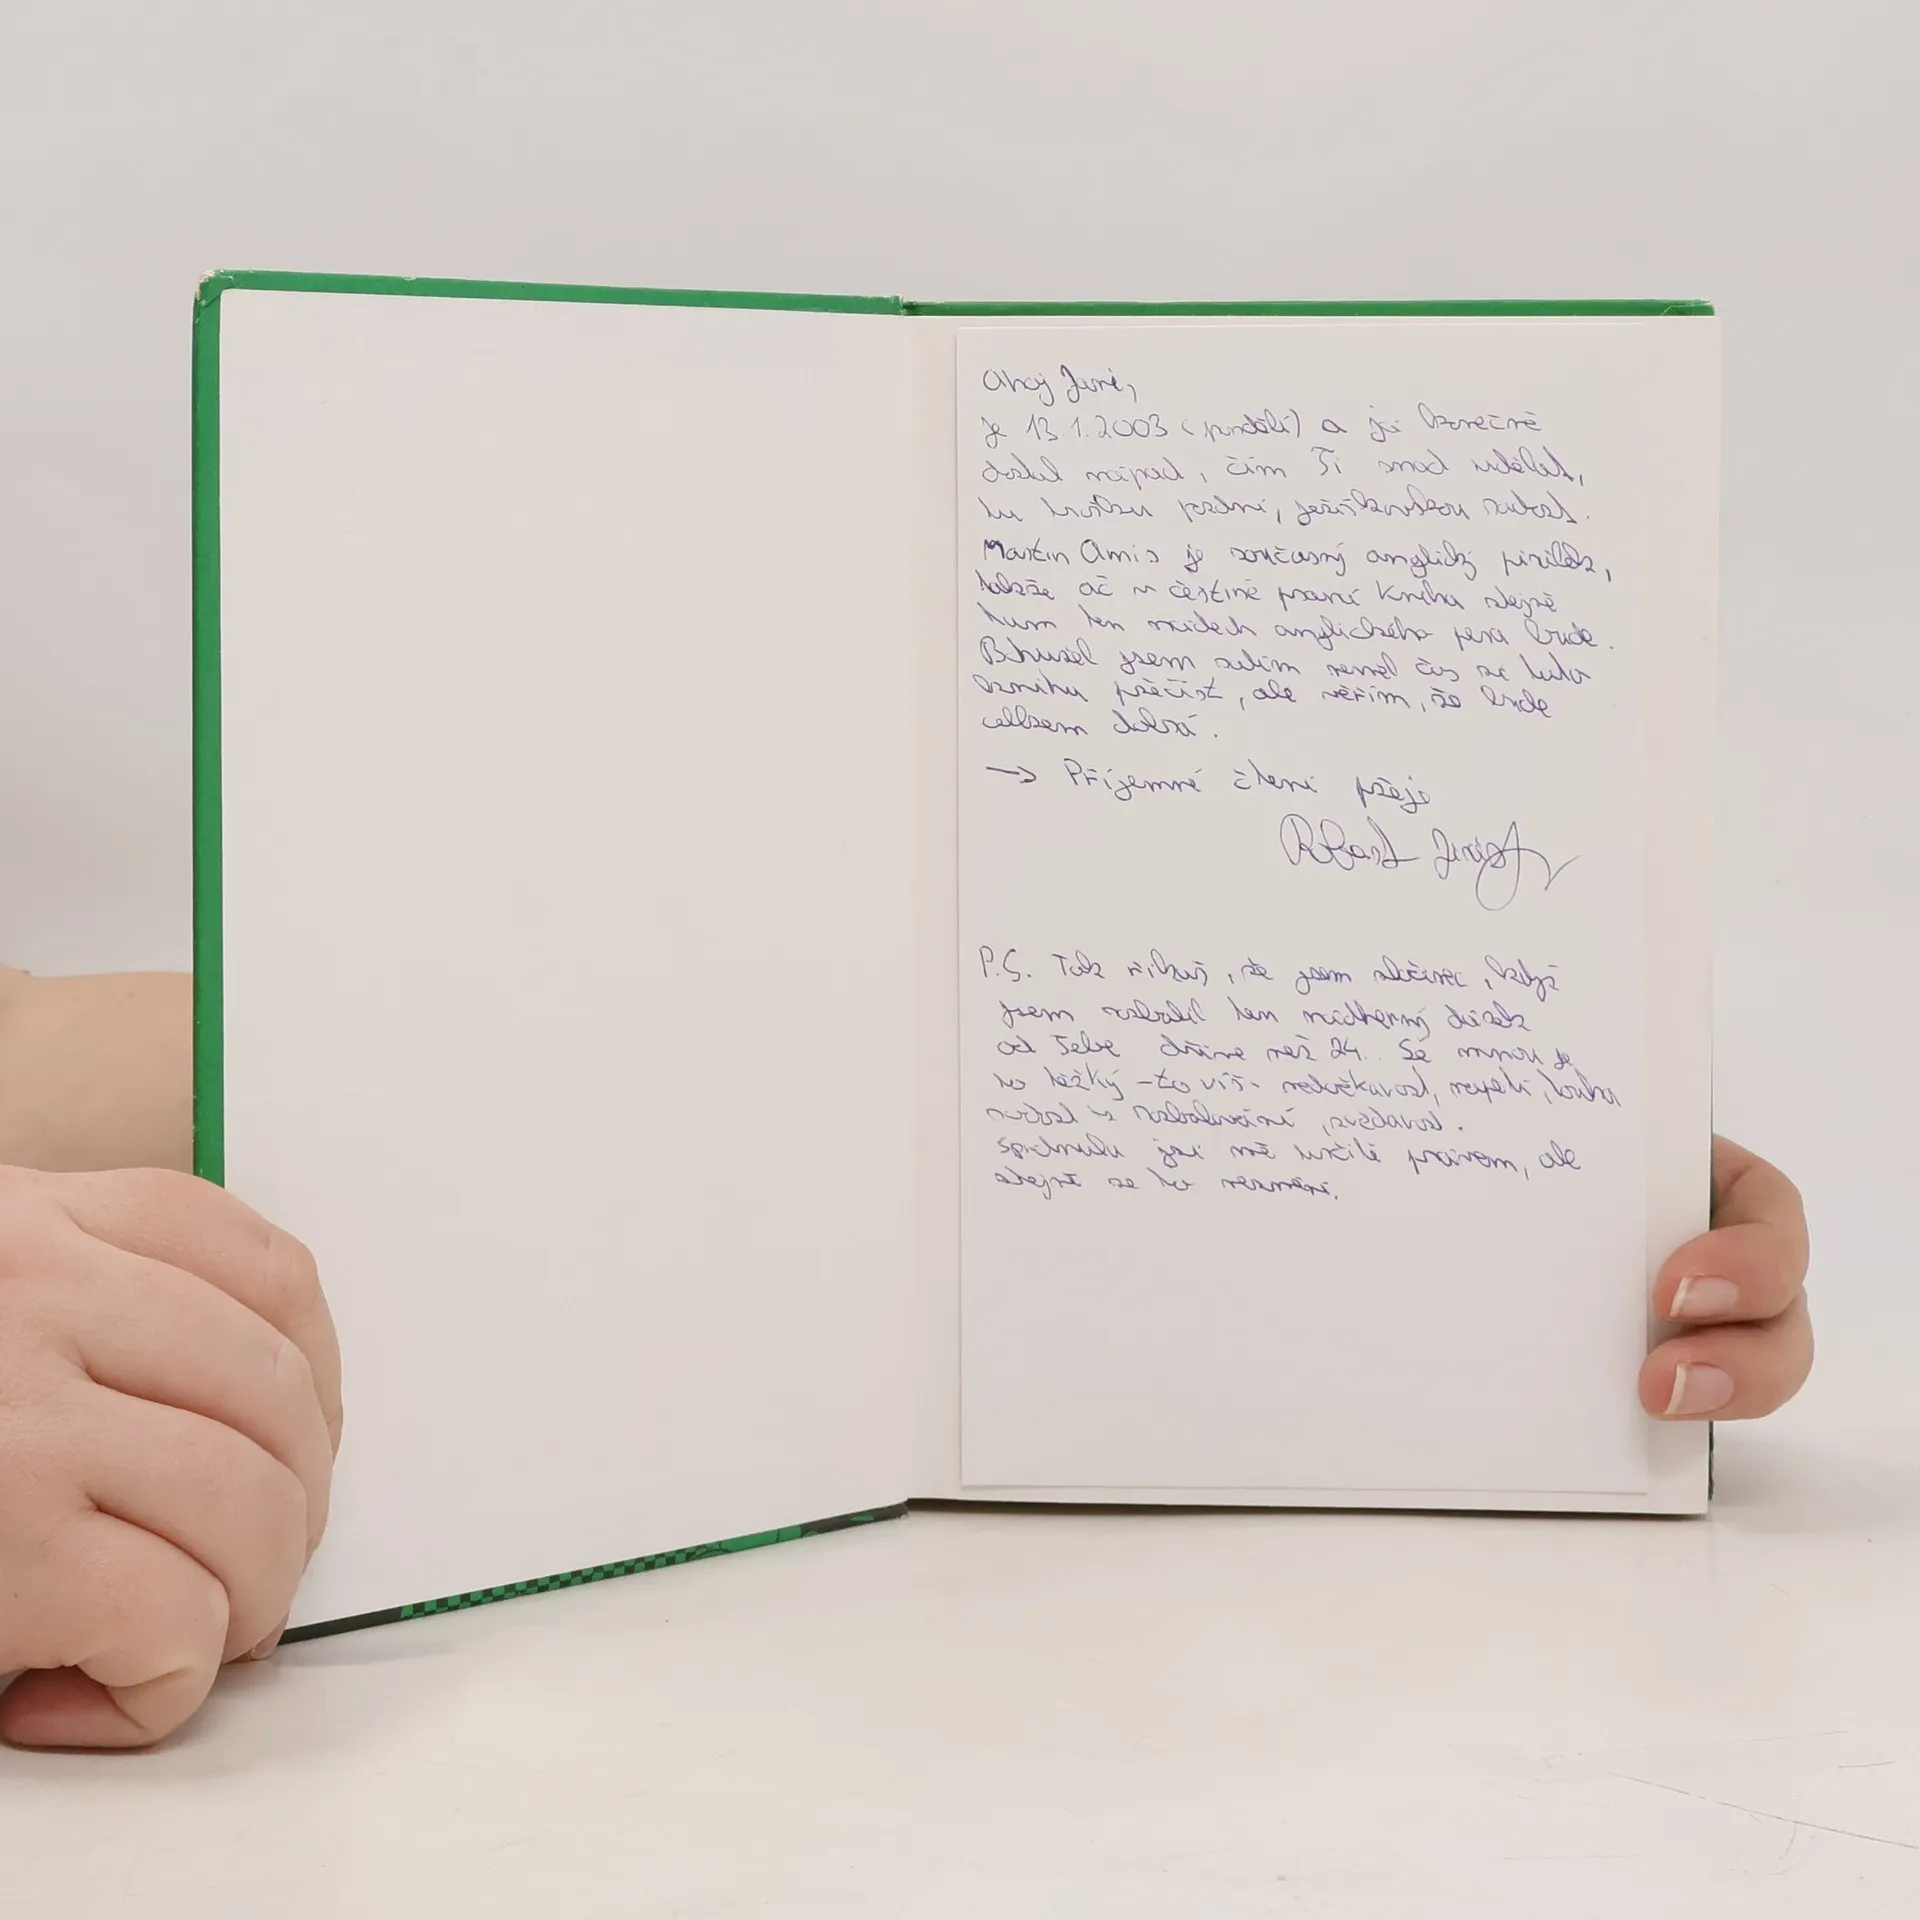 Ahoj Jani,
je 13.1.2003 (pondělí) a já konečně
dostal nápad, čím Ti snad udělat,
tu trošku pozdní, ježíškovskou radost.
Martin Amis je současný anglický spisovatel,
takže ač v češtině psaná kniha stejně
tam ten nádech anglického pera bude.
Bohužel jsem zatím neměl čas si tuto
knihu přečíst, ale věřím, že bude
celkem dobrá.
→ Příjemné čtení přeje
Robert
P.S. Tak říkáš, že jsem zločinec, když
jsem rozbalil ten nádherný dárek
od Tebe dříve než 24. Se mnou je
to těžký - to víš - nedočkavost, napětí, touha
radost z rozbalování, zvědavost.
Sprdnula jsi mě určitě právem, ale
stejně se to nezmění.